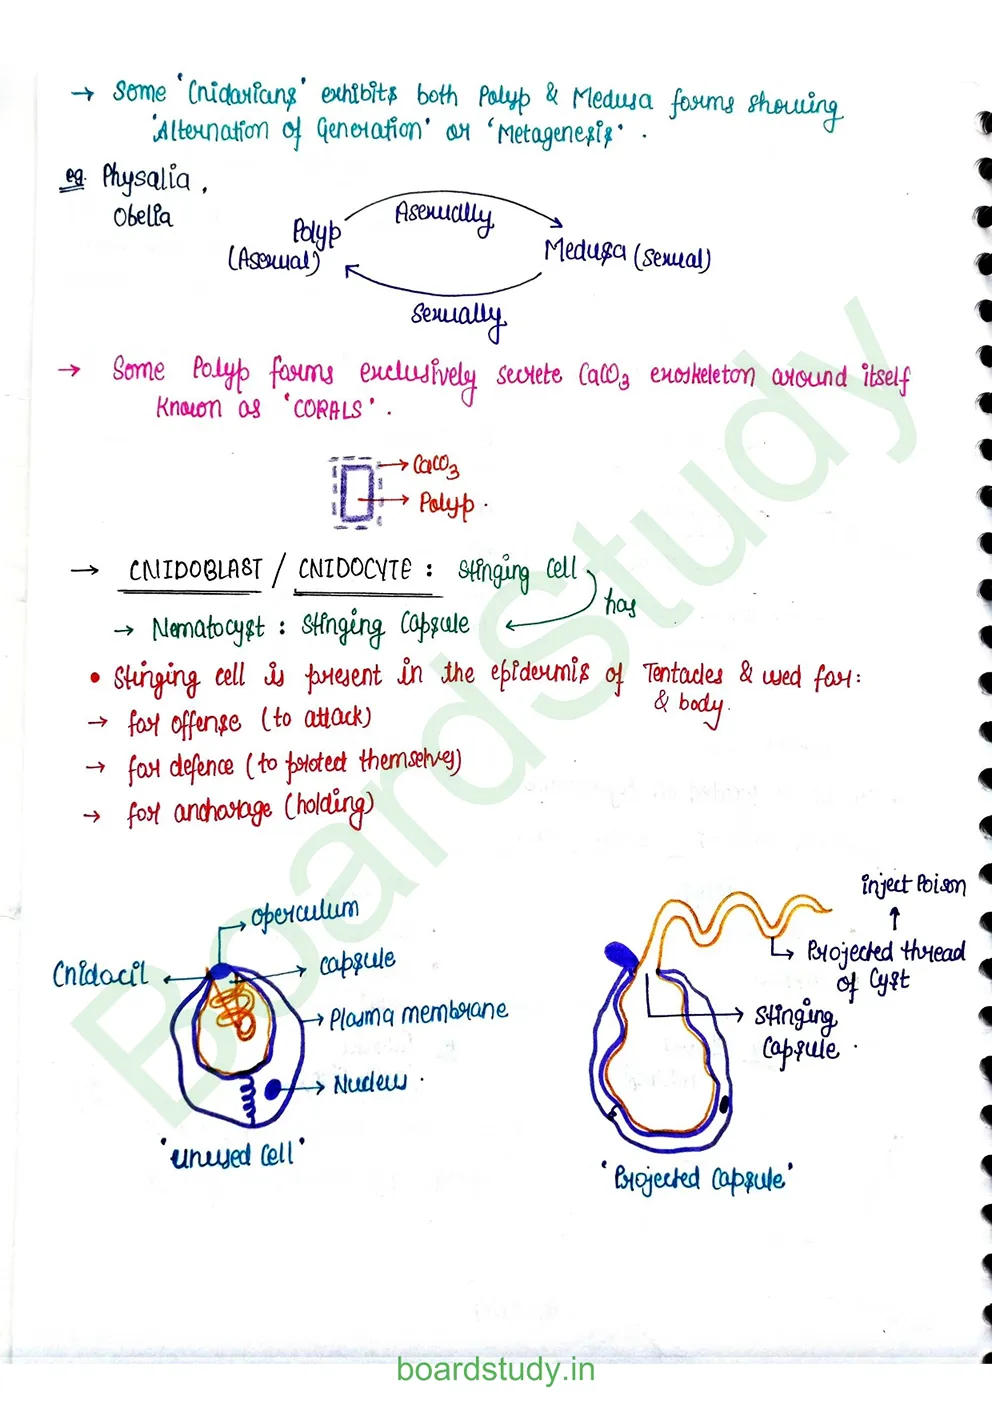 → Some 'Cnidarians' exhibits both Polyp & Medusa forms showing
'Alternation of Generation' or 'Metagenesis'.
eg. Physalia,
Obelia
Asexually
Polyp
(Asexual)
Medusa (sexual)
Sexually
→ Some Polyp forms exclusively secrete CaCO3 exoskeleton around itself
Known as 'CORALS'.
→ CaCO3
→ Polyp.
→ CNIDOBLAST / CNIDOCYTE : Stinging Cell
has
→ Nematocyst : Stinging Capsule
• Stinging cell is present in the epidermis of Tentacles & used for:
& body.
→ for offense (to attack)
→ for defence (to protect themselves)
→ for anchorage (holding)
inject Poison
Operculum
Projected thread
of Cyst
Cnidocil
Capsule
Plasma membrane
Stinging
Capsule.
Nucleus.
'Unused Cell'
'Projected Capsule'
BoardStudy
boardstudy.in